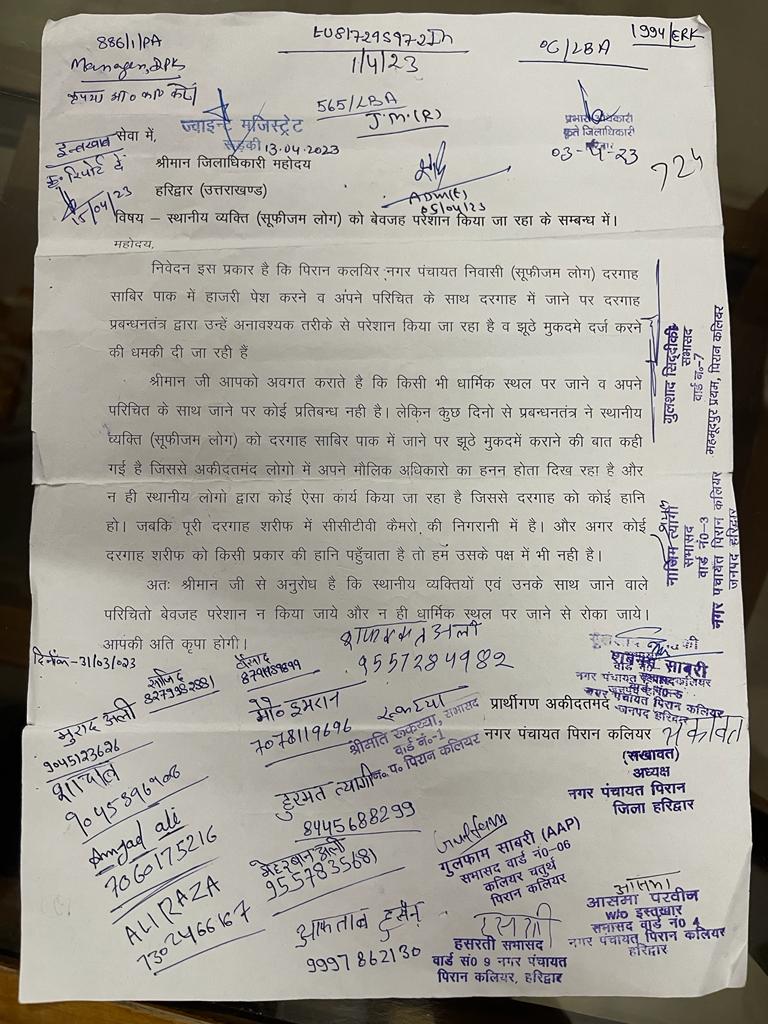 886/1/PA
Manager, DPK
EU81729597IN
1/4/23
OC/LBA
1994/ERK
565/LBA
J.M.(R)
ज्वाइन्ट मजिस्ट्रेट
रूड़की 13.04.2023
प्रभारी अधिकारी
कृते जिलाधिकारी
03-4-23
724
ADM(E)
05/04/23
15/04/23
सेवा में,
श्रीमान जिलाधिकारी महोदय
हरिद्वार (उत्तराखण्ड)
विषय – स्थानीय व्यक्ति (सूफीजम लोग) को बेवजह परेशान किया जा रहा के सम्बन्ध में।
महोदय,
निवेदन इस प्रकार है कि पिरान कलयिर नगर पंचायत निवासी (सूफीजम लोग) दरगाह
साबिर पाक में हाजरी पेश करने व अपने परिचित के साथ दरगाह में जाने पर दरगाह
प्रबन्धनतंत्र द्वारा उन्हें अनावश्यक तरीके से परेशान किया जा रहा है व झूठे मुकदमे दर्ज करने
की धमकी दी जा रही हैं
श्रीमान जी आपको अवगत कराते है कि किसी भी धार्मिक स्थल पर जाने व अपने
परिचित के साथ जाने पर कोई प्रतिबन्ध नही है। लेकिन कुछ दिनो से प्रबन्धनतंत्र ने स्थानीय
व्यक्ति (सूफीजम लोग) को दरगाह साबिर पाक में जाने पर झूठे मुकदमें कराने की बात कही
गई है जिससे अकीदतमंद लोगो में अपने मौलिक अधिकारो का हनन होता दिख रहा है और
न ही स्थानीय लोगो द्वारा कोई ऐसा कार्य किया जा रहा है जिससे दरगाह को कोई हानि
हो। जबकि पूरी दरगाह शरीफ में सीसीटीवी कैमरो की निगरानी में है। और अगर कोई
दरगाह शरीफ को किसी प्रकार की हानि पहुँचाता है तो हम उसके पक्ष में भी नही है।
अतः श्रीमान जी से अनुरोध है कि स्थानीय व्यक्तियों एवं उनके साथ जाने वाले
परिचितो बेवजह परेशान न किया जाये और न ही धार्मिक स्थल पर जाने से रोका जाये।
आपकी अति कृपा होगी।
गुलशाद सिद्दीकी
सभासद
वार्ड नं०-7
नाजिम त्यागी
सभासद
वार्ड नं०-3
नगर पंचायत पिरान कलियर
जनपद हरिद्वार
दिनांक-31/03/023
साजिद
8279982881
8791189899
शफकत अली
9557284982
मुराद अली
9045123626
मो० इमरान
7078119696
रूकय्या
श्रीमति रूकय्या, सभासद
वार्ड नं०-1
न० प० पिरान कलियर
शबनम साबरी
नगर पंचायत पिरान कलियर
जनपद हरिद्वार
प्रार्थीगण अकीदतमंद
नगर पंचायत पिरान कलियर
(सखावत)
अध्यक्ष
नगर पंचायत पिरान
जिला हरिद्वार
9045896906
हुरमत त्यागी
8445688299
Amjad ali
7060175216
मेहरबान अली
9557835681
गुलफाम साबरी (AAP)
सभासद वार्ड नं0-06
कलियर चतुर्थ
पिरान कलियर
ALI RAZA
7302466167
आफताब हुसैन
9997862130
हसरती सभासद
वार्ड सं0 9 नगर पंचायत
पिरान कलियर, हरिद्वार
आसमा
आसमा परवीन
W/O इस्तखार
सभासद वार्ड नं0 4
नगर पंचायत पिरान कलियर
हरिद्वार